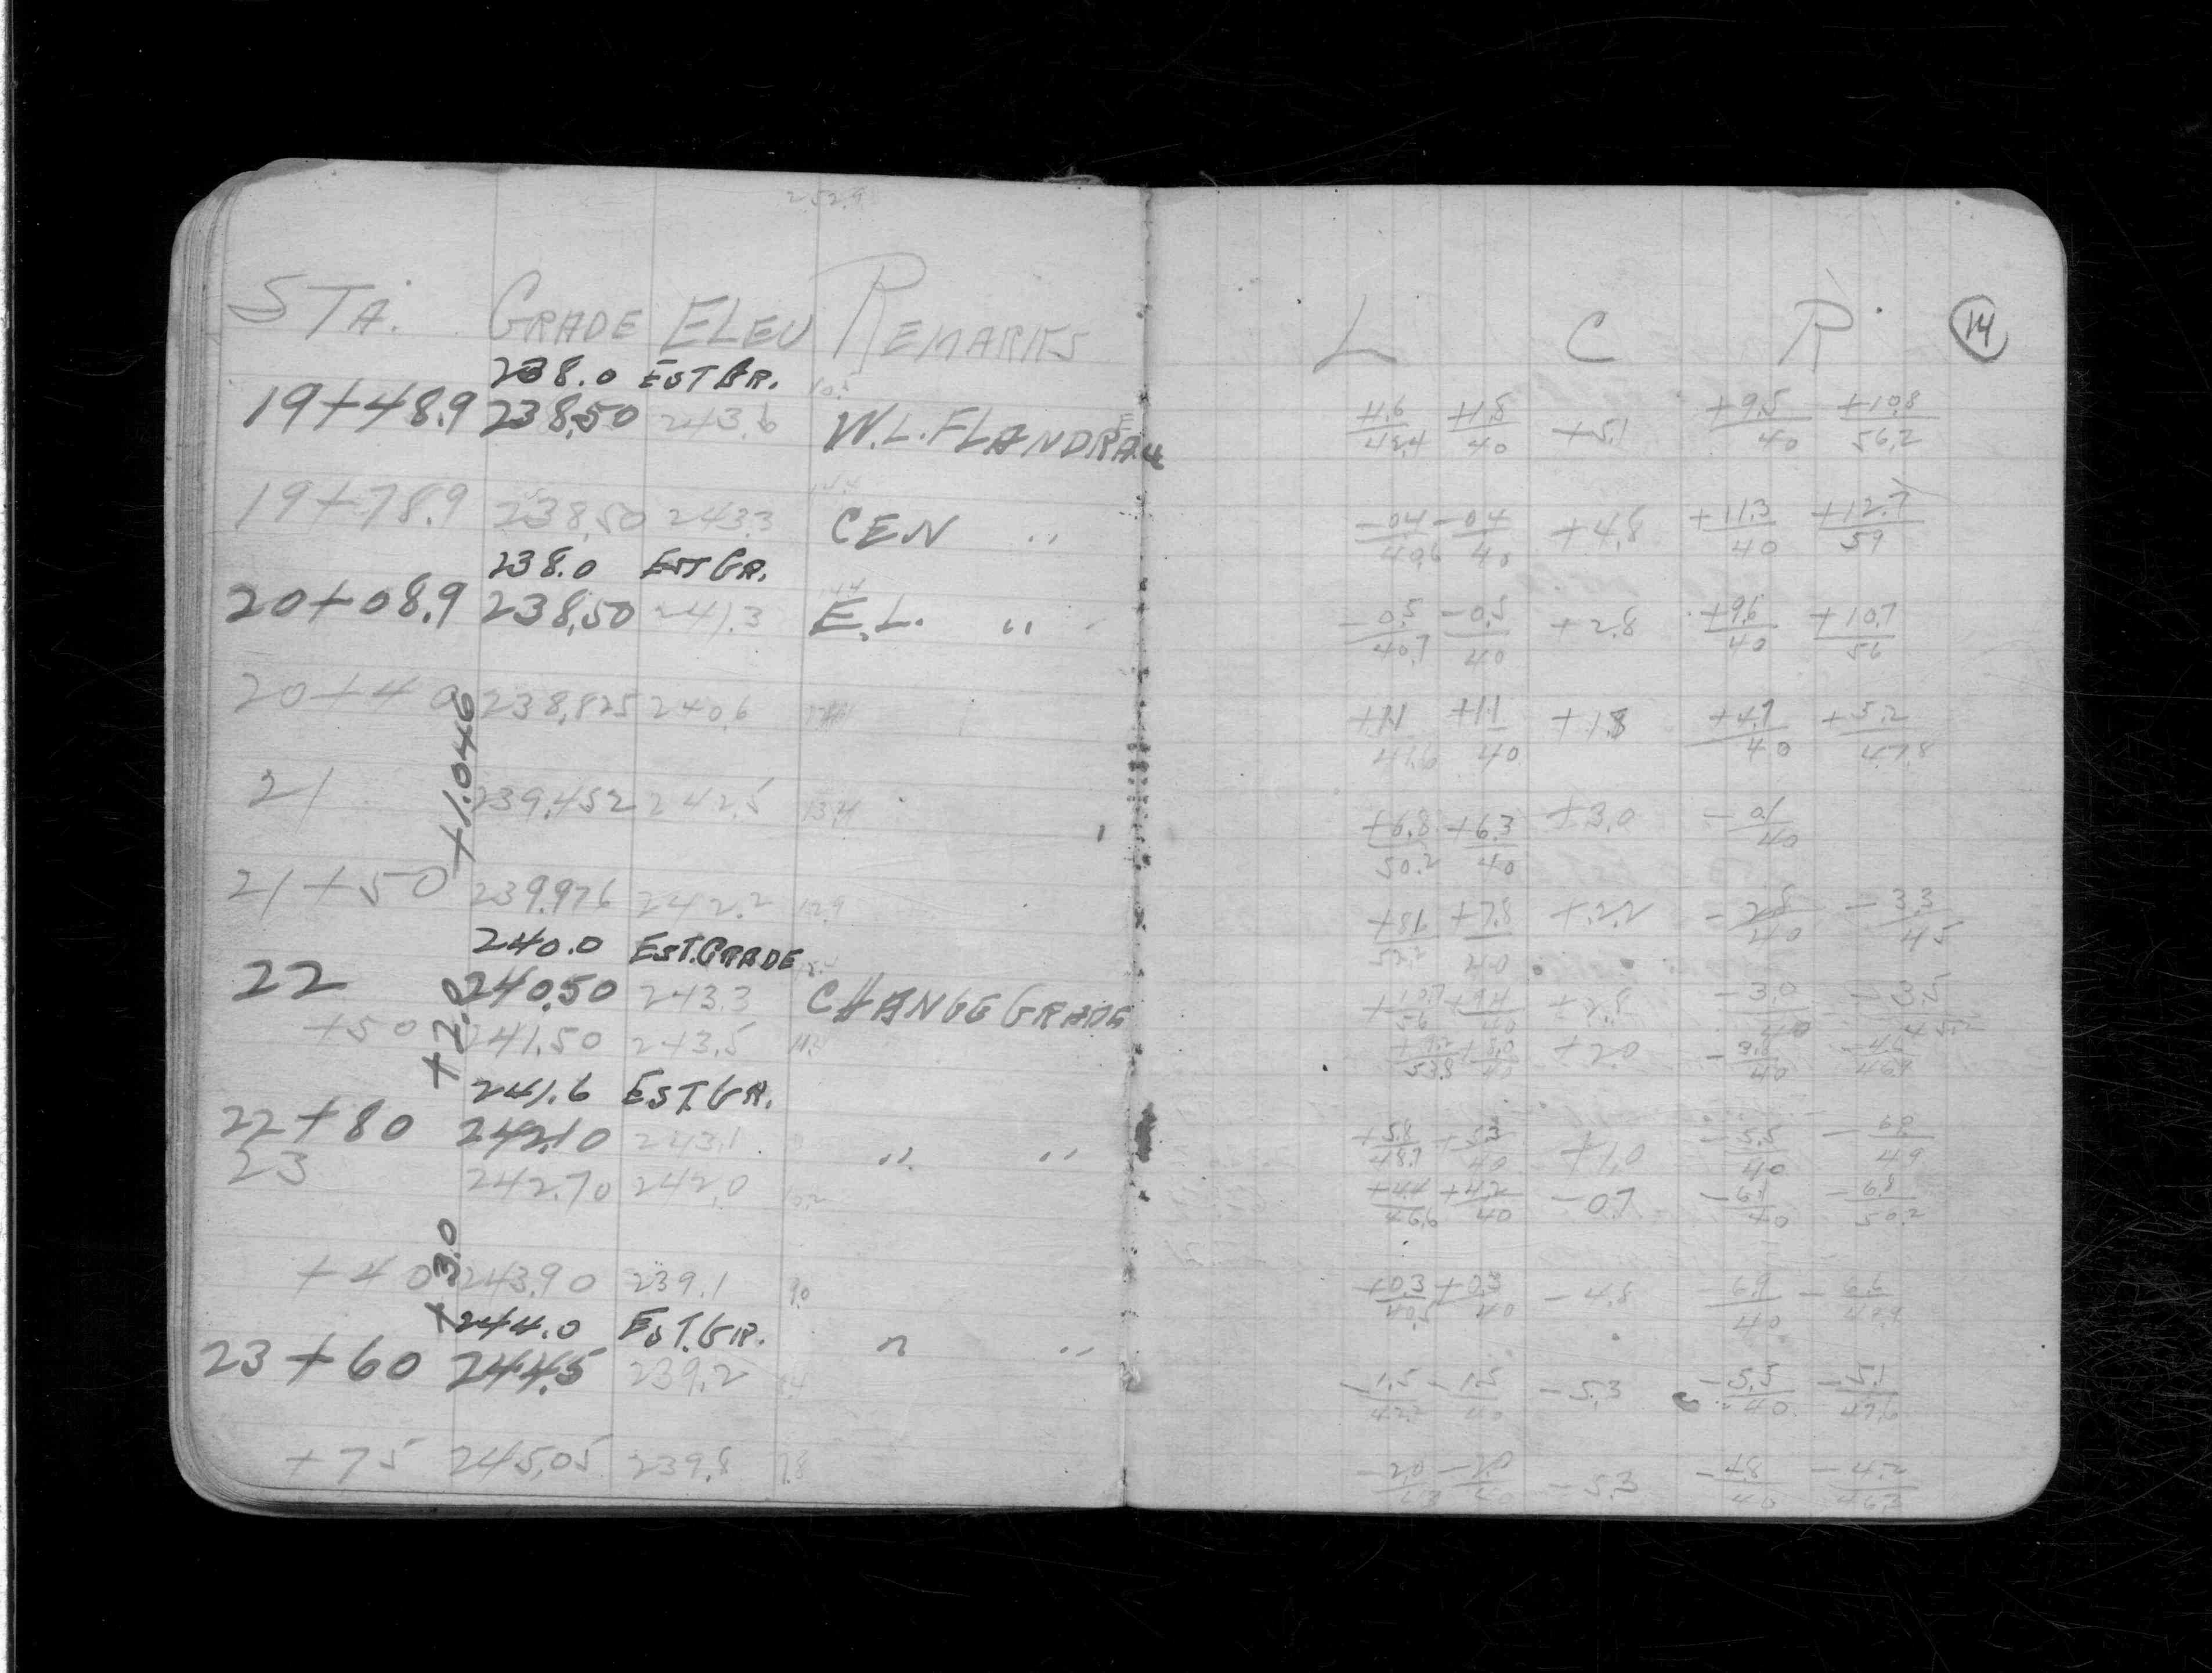 252.9
STA. GRADE ELEV REMARKS L C R 14
238.0 EST GR.
19+48.9 238.50 243.6 W.L. FLANDREAU +1.6 +1.5 +5.1 +9.5 +10.8
42.4 40 40 56.2
19+78.9 238.50 243.3 CEN " -0.4 -0.4 +4.8 +11.3 +12.7
40.6 40 40 59
238.0 EST GR.
20+08.9 238.50 241.3 E.L. " -0.5 -0.5 +2.8 +9.6 +10.7
40.7 40 40 56
20+40 238.825 240.6 +1.1 +1.1 +1.8 +4.7 +5.2
41.6 40 40 47.8
+1.046
21 239.452 242.5 13.4 +6.8 +6.3 +3.0 -0.1
50.2 40 40
21+50 239.976 242.2 12.9 +8.1 +7.8 +2.2 -2.8 -3.3
52.2 40 40 45
240.0 EST. GRADE
22 240.50 243.3 CHANGE GRADE +9.4 +2.8 -3.0 -3.5
56 40 40 45.2
+2.0
+50 241.50 243.5 11.4 +9.2 +8.0 +2.0
53.8 40 40 46.9
241.6 EST. GR.
22+80 242.10 243.1 " " +5.8 +5.3 +1.0 -5.5
48.7 40 40 49
23 242.70 242.0 10.2 +4.4 +4.2 -0.7 -6.1 -6.8
46.6 40 40 50.2
+3.0
+40 243.90 239.1 9.0 +0.3 +0.3 -4.8 -6.9 -6.6
40.5 40 40 49.9
244.0 EST. GR.
23+60 244.5 239.2 8.4 " " -1.5 -1.5 -5.3 -5.5 -5.1
42.2 40 40 47.6
+75 245.05 239.8 7.8 -2.0 -2.0 -5.3 -4.8 -4.2
43 40 40 46.3